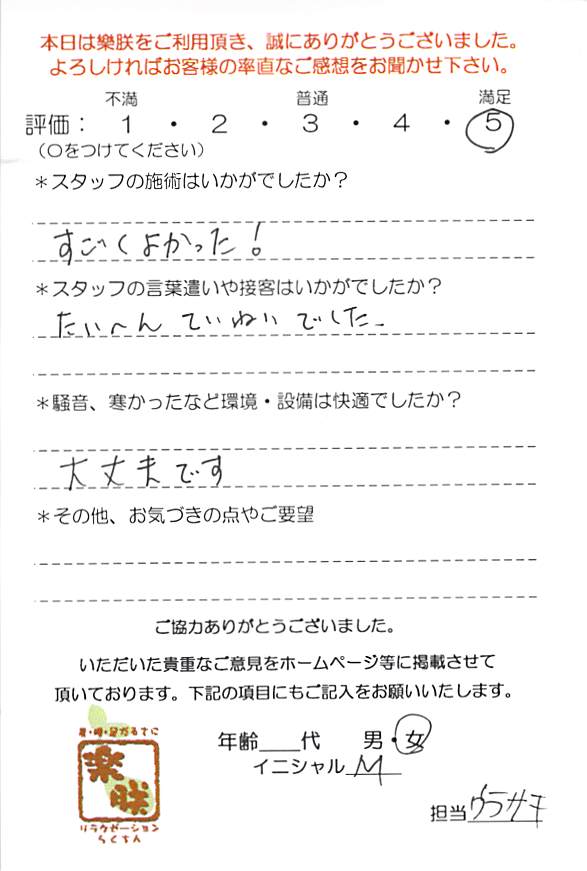 本日は樂朕をご利用頂き、誠にありがとうございました。
よろしければお客様の率直なご感想をお聞かせ下さい。
不満 普通 満足
評価： 1 ・ 2 ・ 3 ・ 4 ・ 5
（○をつけてください）
＊スタッフの施術はいかがでしたか？
すごくよかった！
＊スタッフの言葉遣いや接客はいかがでしたか？
たいへんていねいでした.
＊騒音、寒かったなど環境・設備は快適でしたか？
大丈夫です
＊その他、お気づきの点やご要望
ご協力ありがとうございました。
いただいた貴重なご意見をホームページ等に掲載させて
頂いております。下記の項目にもご記入をお願いいたします。
年齢___代 男・女
イニシャル M
担当 ウラサキ
楽朕
リラクゼーション
らくちん